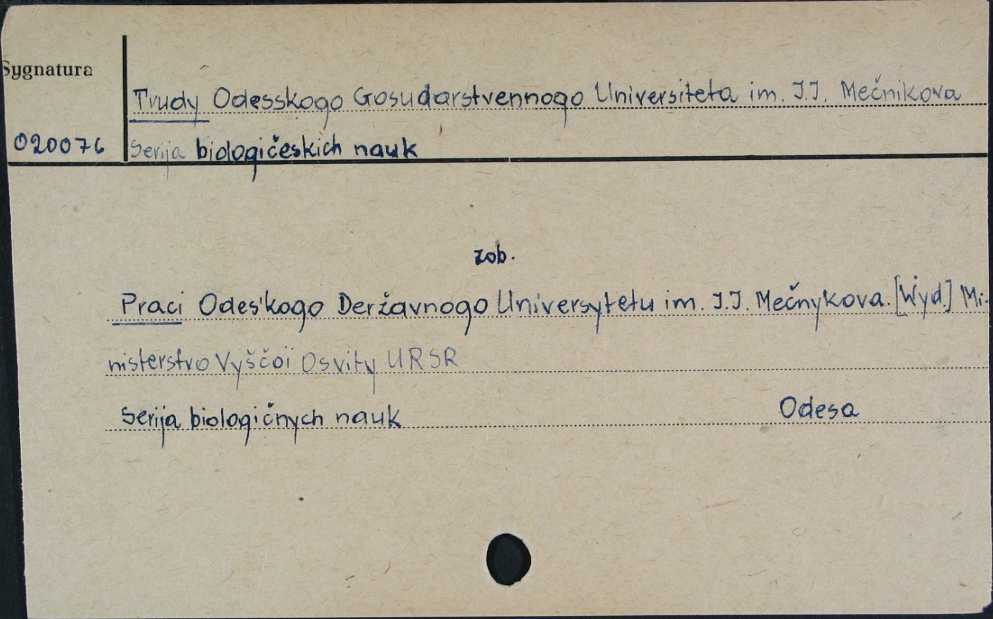 Sygnatura
Trudy Odesskogo Gosudarstvennogo Universiteta im. I.I. Mečnikova
020076
Serija biologičeskich nauk
zob.
Praci Odes'kogo Deržavnogo Universytetu im. I.I. Mečnykova. [Wyd.] Mi-
nisterstvo Vyščoï Osvity URSR
Serija biologičnych nauk Odesa